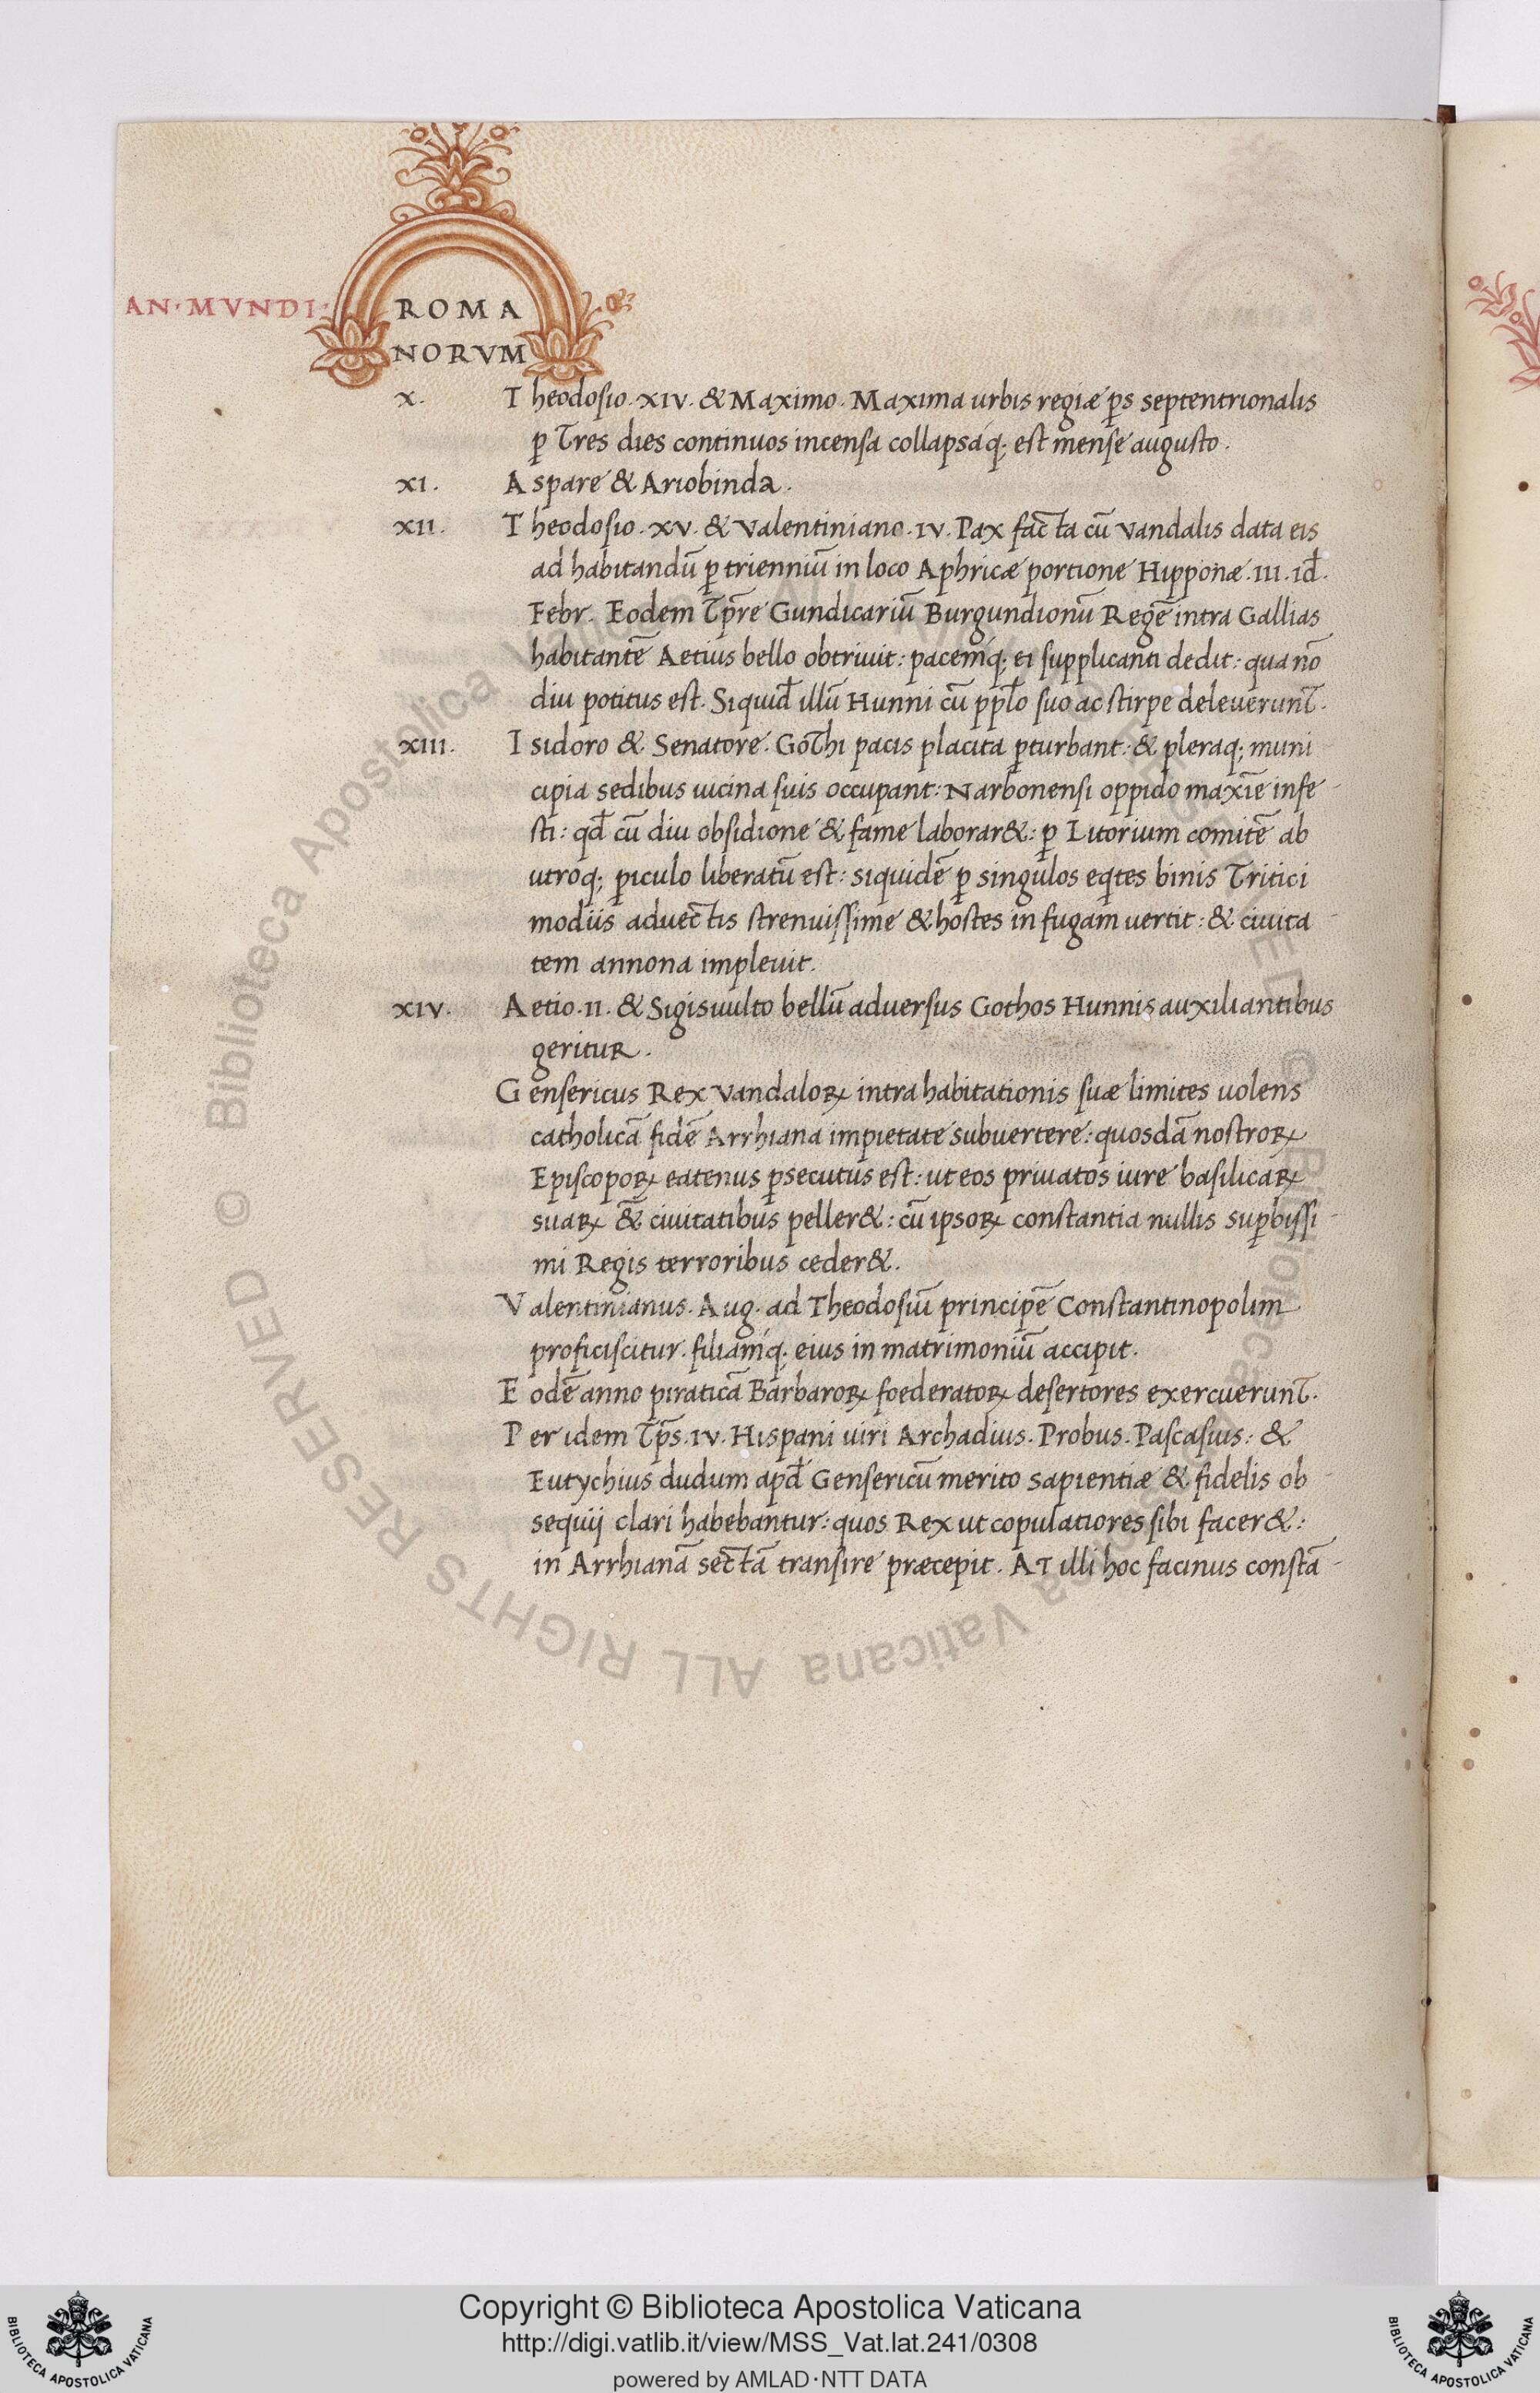 AN·MVNDI·
ROMA
NORVM
X. Theodosio·XIV·& Maximo·Maxima urbis regiæ p̱s septentrionalis
ꝑ Tres dies continuos incensa collapsáq; est mense augusto.
XI. Aspare & Ariobinda.
XII. Theodosio·XV·& Valentiniano·IV·Pax facta cū Vandalis data eis
ad habitandū ꝑ trienniū in loco Aphricæ portione Hipponæ·III·id̄.
Febr. Eodem Tp̄re Gundicariū Burgundionū Regē intra Gallias
habitantē Aetius bello obtriuit: pacemq́; ei supplicanti dedit: qua nō
diu potitus est. Siquid̄ illū Hunni cū pp̄lo suo ac stirpe deleuerunt.
XIII. Isidoro & Senatore. Gothi pacis placita ꝑturbant: & pleraq; muni
cipia sedibus uicina suis occupant: Narbonensi oppido maxīe infe-
sti: qd̄ cū diu obsidione & fame laborar&: ꝑ Litorium comitē ab
utroq; ꝑiculo liberatū est: siquidē ꝑ singulos eq̇tes binis Tritici
modiis aduectis strenuissime & hostes in fugam uertit: & ciuita-
tem annona impleuit.
XIV. Aetio·II·& Sigisuulto bellū aduersus Gothos Hunnis auxiliantibus
geritur.
Gensericus Rex Vandaloꝝ intra habitationis suæ limites uolens
catholicā fidē Arrhiana impietate subuertere: quosdā nostroꝝ
Episcopoꝝ eatenus ꝑsecutus est: ut eos priuatos iure basilicaꝝ
suaꝝ &̄ ciuitatibus peller&: cū ipsoꝝ constantia nullis suꝑbissi-
mi Regis terroribus ceder&.
Valentinianus·Aug·ad Theodosiū principē Constantinopolim
proficiscitur. filiamq́; eius in matrimoniū accipit.
Eodē anno piraticā Barbaroꝝ foederatoꝝ desertores exercuerunt.
Per idem Tp̄s·IV·Hispani uiri Archadius·Probus·Pascasius: &
Eutychius dudum apd̄ Gensericū merito sapientiæ & fidelis ob-
sequij clari habebantur: quos Rex ut copulatiores sibi facer&:
in Arrhianā sectā transire præcepit. At illi hoc facinus constā-
© Biblioteca Apostolica Vaticana ALL RIGHTS RESERVED
Copyright © Biblioteca Apostolica Vaticana
http://digi.vatlib.it/view/MSS_Vat.lat.241/0308
powered by AMLAD·NTT DATA
BIBLIOTECA APOSTOLICA VATICANA
BIBLIOTECA APOSTOLICA VATICANA